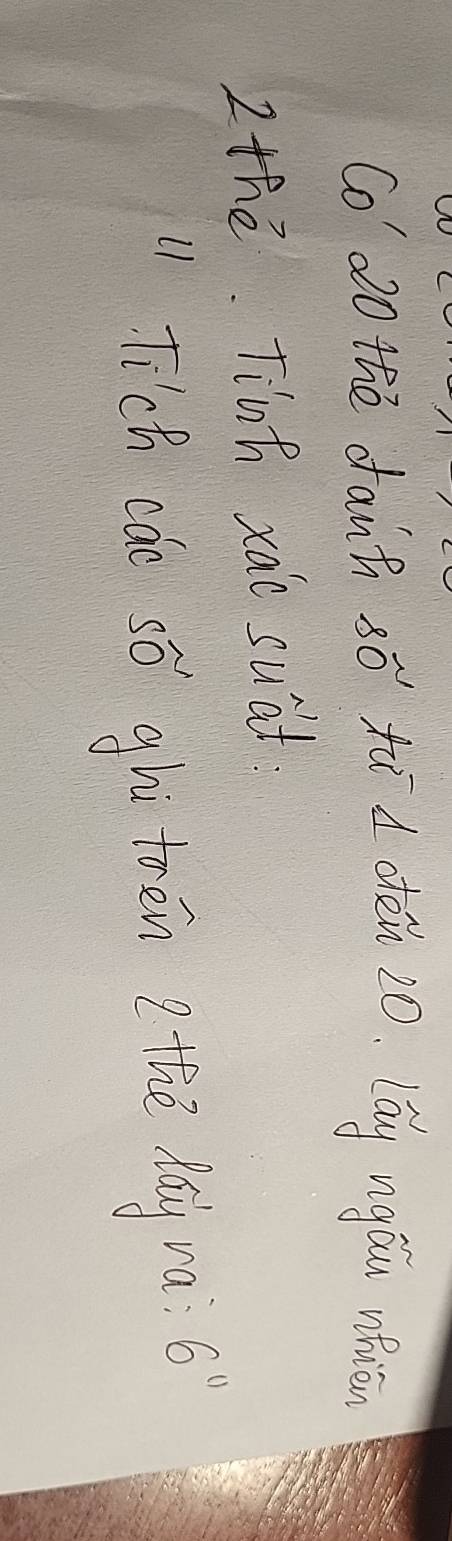 Có 20 thẻ đánh số từ 1 đến 20. Lấy ngẫu nhiên
2 thẻ. Tính xác suất:
" Tích các số ghi trên 2 thẻ lấy ra : 6"